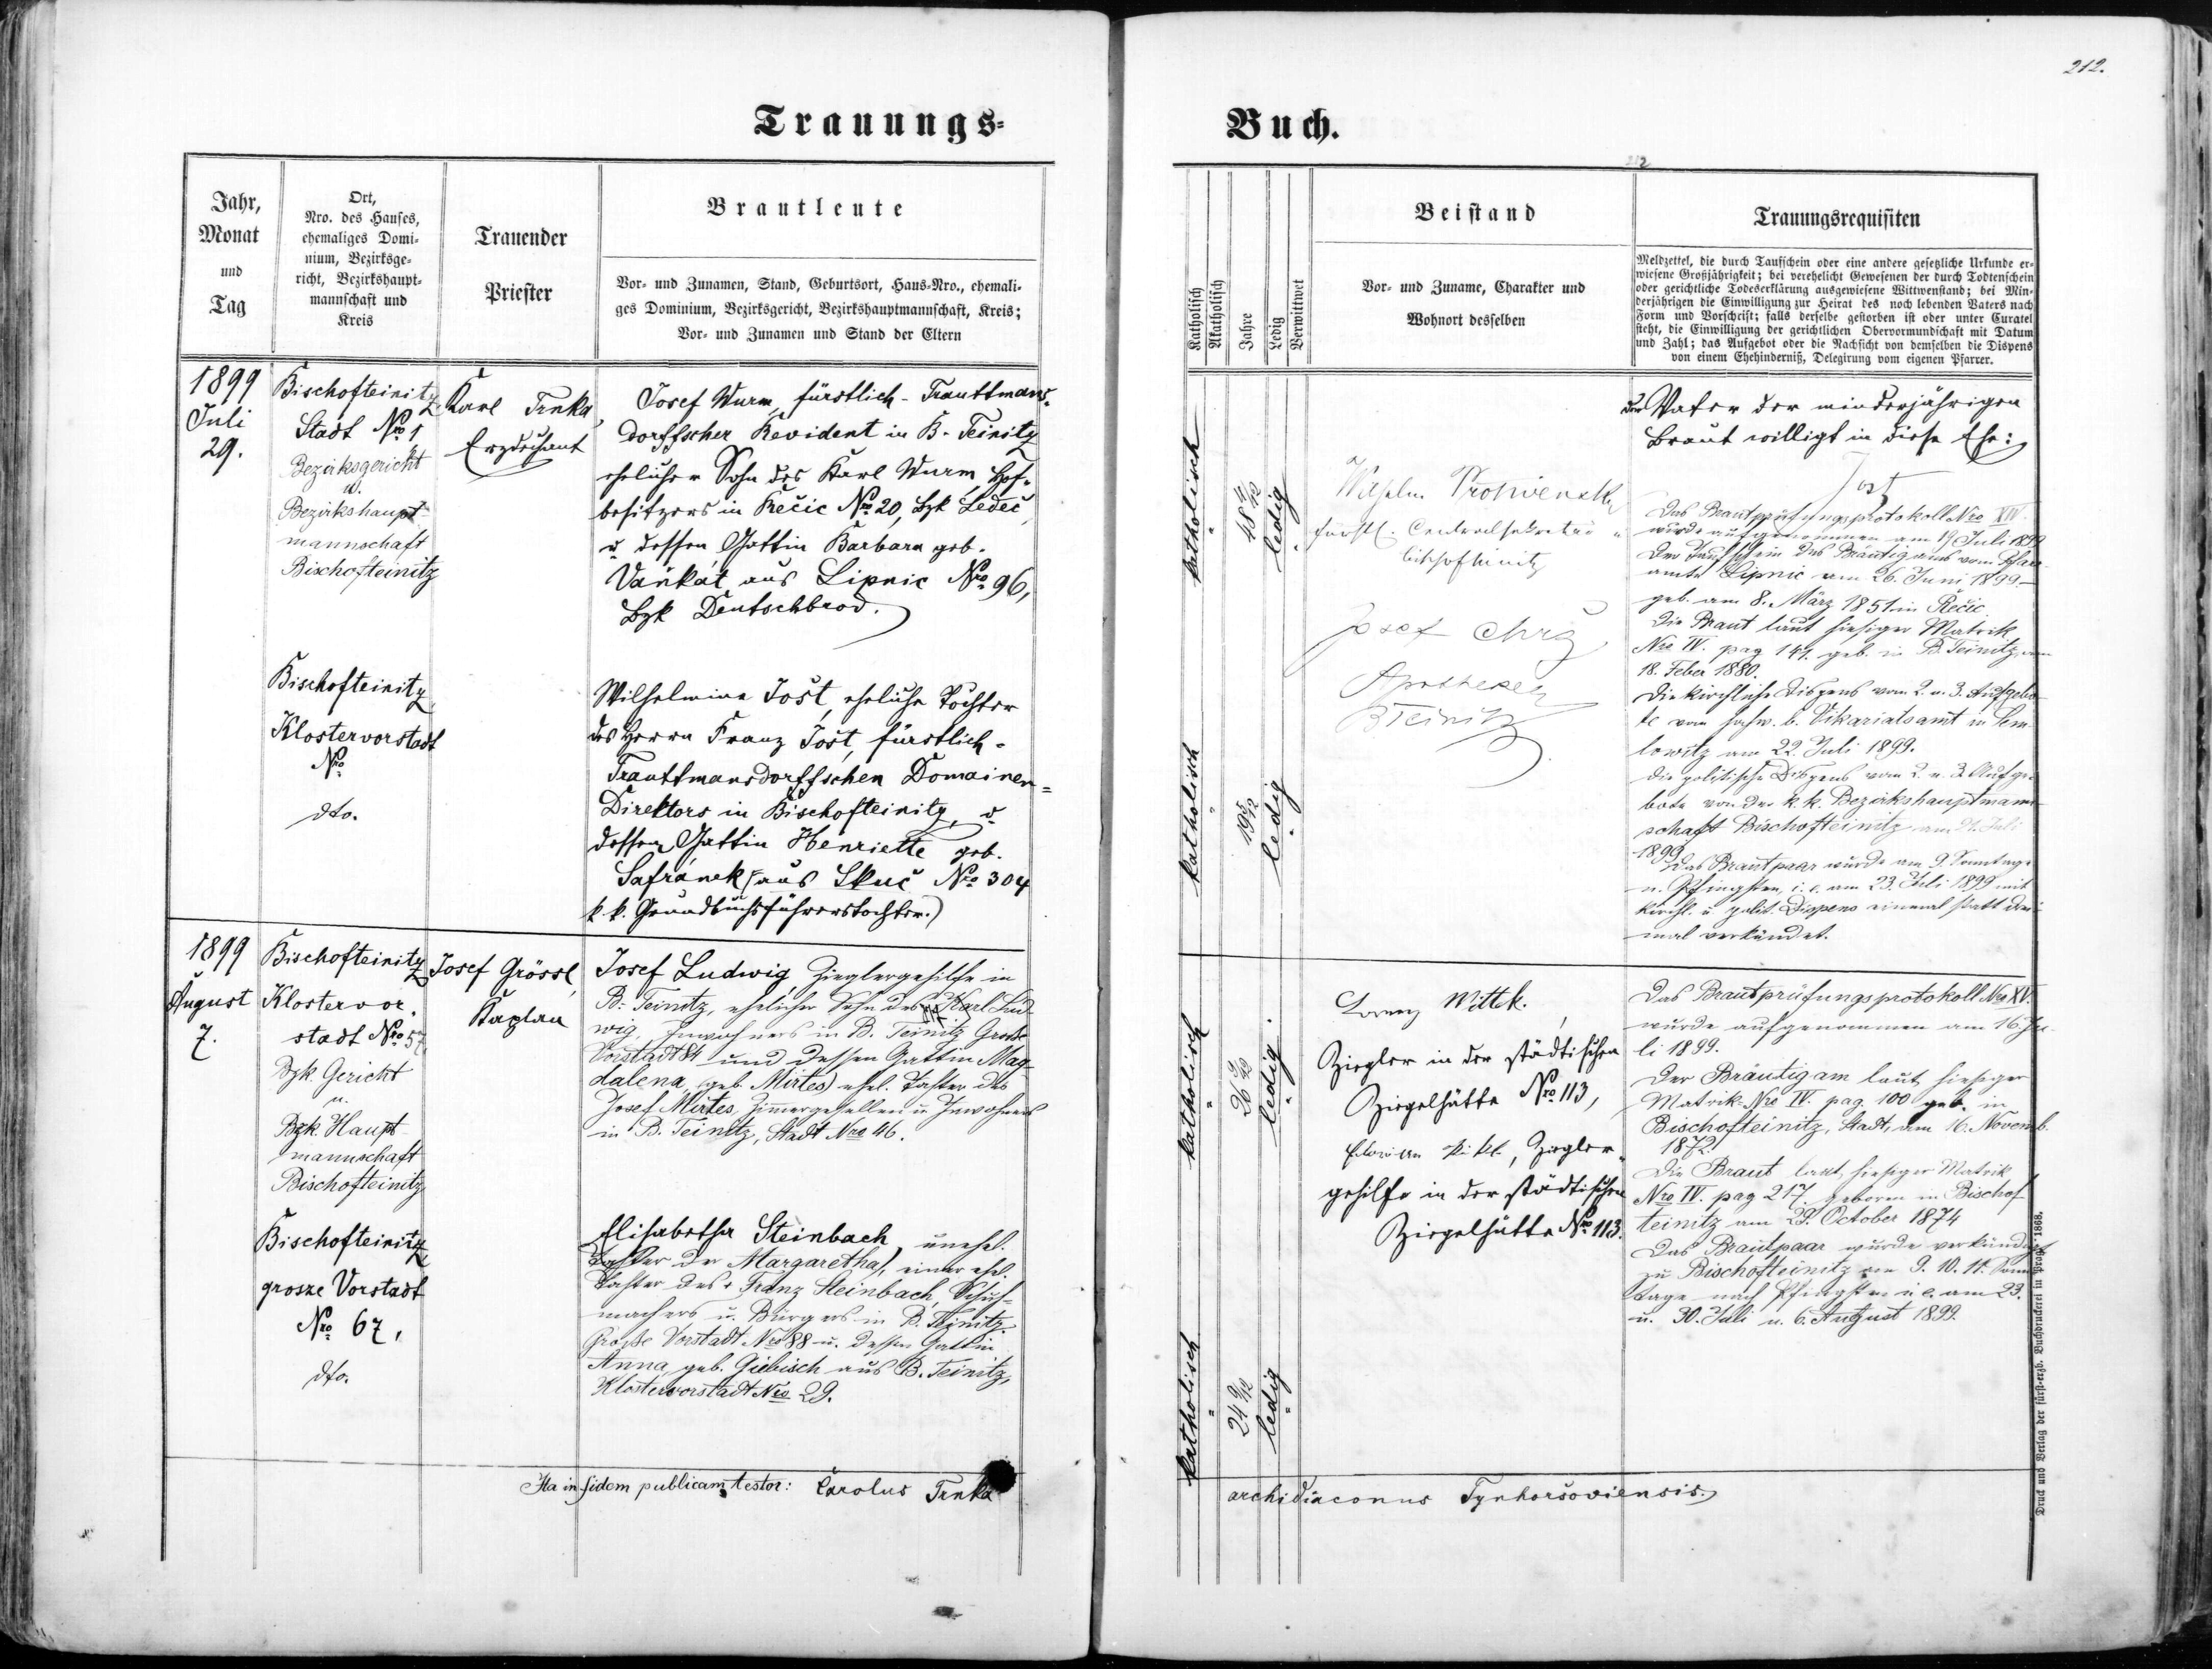 212.
Trauungs-
Buch.
212
Jahr,
Monat
und
Tag
Ort,
Nro. des Hauses,
ehemaliges Domi-
nium, Bezirksge-
richt, Bezirkshaupt-
mannschaft und
Kreis
Trauender
Priester
Brautleute
Vor- und Zunamen, Stand, Geburtsort, Haus-Nro., ehemali-
ges Dominium, Bezirksgericht, Bezirkshauptmannschaft, Kreis;
Vor- und Zunamen und Stand der Eltern
Katholisch
Akatholisch
Jahre
Ledig
Verwittwet
Beistand
Vor- und Zuname, Charakter und
Wohnort desselben
Trauungsrequisiten
Meldzettel, die durch Taufschein oder eine andere gesetzliche Urkunde er-
wiesene Großjährigkeit; bei verehelicht Gewesenen der durch Todtenschein
oder gerichtliche Todeserklärung ausgewiesene Wittwenstand; bei Min-
derjährigen die Einwilligung zur Heirat des noch lebenden Vaters nach
Form und Vorschrift; falls derselbe gestorben ist oder unter Curatel
steht, die Einwilligung der gerichtlichen Obervormundschaft mit Datum
und Zahl; das Aufgebot oder die Nachsicht von demselben die Dispens
von einem Ehehinderniß, Delegirung vom eigenen Pfarrer.
1899
Juli
29.
Bischofteinitz
Stadt Nro 1,
Bezirksgericht
u.
Bezirkshaupt-
mannschaft
Bischofteinitz
Karl Trnka,
Erzdechant
Josef Wurm, fürstlich-Trauttmans-
dorffscher Revident in B. Teinitz
ehelicher Sohn des Karl Wurm Hof-
besitzers in Řečic Nro 20, Bzk Ledeč,
u. dessen Gattin Barbara geb.
Vaňkát aus Lipnic Nro 96,
Bzk Deutschbrod.
katholisch
48 4/12
ledig
Wilhelm
fürstl. Centralsekretär
Bischofteinitz
Josef Chrž
Apotheker
B Teinitz
Der Vater der minderjährigen
Braut willigt in diese Ehe:
Jost
Das Brautprüfungsprotokoll Nro XIV.
wurde aufgenommen am 19. Juli 1899
Der Taufschein des Bräutigams vom Pfarr-
amte Lipnic am 26. Juni 1899 –
geb. am 8. März 1851 in Řečic.
Die Braut laut hiesiger Matrik
Nro IV. pag 141. geb. in B. Teinitz am
18. Feber 1880.
Die kirchliche Dispens vom 2. u. 3. Aufgebo-
te vom hochw. b. Vikariatsamt in Sem-
lowitz am 22. Juli 1899.
Die politische Dispens vom 2. u. 3. Aufge-
bote von der k. k. Bezirkshauptmann-
schaft Bischofteinitz am 21. Juli
1899.
Das Brautpaar wurde am 9. Sonntage
n. Pfingsten, i. e. am 23. Juli 1899 mit
kirchl. u. polit. Dispens einmal statt drei-
mal verkündet.
Bischofteinitz,
Klostervorstadt
Nro
dto.
Wilhelmine Jost, eheliche Tochter
des Herrn Franz Jost, fürstlich-
Trauttmansdorffschen Domainen-
Direktors in Bischofteinitz, u.
dessen Gattin Henriette geb.
Safránek (aus Skuč Nro 304
k. k. Grundbuchsführerstochter.)
katholisch
19 5/12
ledig
1899
August
7.
Bischofteinitz
Klostervor-
stadt Nro 57,
Bzk. Gericht
u.
Bzk. Haupt-
mannschaft
Bischofteinitz
Josef Grössl,
Kaplan
Josef Ludwig, Zieglergehilfe in
B. Teinitz, ehelicher Sohn des Karl Lud-
wig, Inwohners in B. Teinitz Große
Vorstadt 84 und dessen Gattin Mag-
dalena, geb. Mirtes, ehel. Tochter des
Josef Mirtes, Zimmergesellen u. Inwohners
in B. Teinitz, Stadt Nro 46.
katholisch
26 9/12
ledig
Lorenz Mittek.
Ziegler in der städtischen
Ziegelhütte Nro 113,
Florian, Ziegler-
gehilfe in der städtischen
Ziegelhütte Nro 113.
Das Brautprüfungsprotokoll Nro XV.
wurde aufgenommen am 16. Ju-
li 1899.
Der Bräutigam laut hiesiger
Matrik Nro IV. pag. 100 geb. in
Bischofteinitz, Stadt, am 16. Novemb.
1872.
Die Braut laut hiesiger Matrik
Nro IV. pag 217. geboren in Bischof-
teinitz am 29. October 1874
Das Brautpaar wurde verkündet
zu Bischofteinitz am 9. 10. 11. Sonn-
tage nach Pfingsten i. e. am 23.
u. 30. Juli u. 6. August 1899.
Bischofteinitz
grosze Vorstadt
Nro 67,
dto.
Elisabetha Steinbach, unehel.
Tochter der Margaretha, einer ehel.
Tochter des Franz Steinbach, Schuh-
machers u. Bürgers in B. Teinitz,
Große Vorstadt Nro 88 u. dessen Gattin
Anna geb. Giebisch aus B. Teinitz,
Klostervorstadt Nro 29.
katholisch
24 9/12
ledig
Ita in fidem publicam testor: Carolus Trnka
archidiaconus Tynhoršoviensis.
Druck und Verlag der fürst-erzb. Buchdruckerei in Prag. 1868.